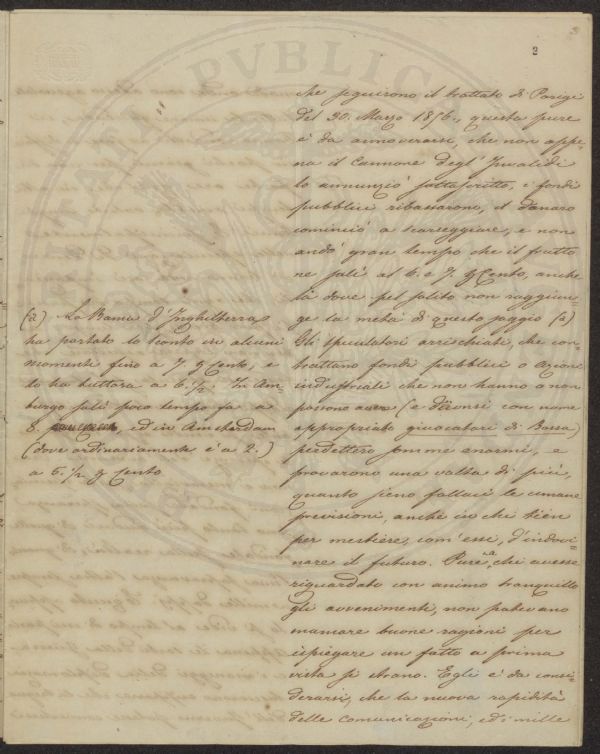 3
che seguirono il trattato di Parigi
del 30. Marzo 1856., questa pure
è da annoverarsi, che non appe=
na il Cannone degl' Invalidi
lo annunziò sottoscritto, i fondi
pubblici ribassarono, il danaro
cominciò a scarseggiare, e non
andò gran tempo che il frutto
ne salì al 6. e 7. p Cento, anche
là dove pel solito non raggiun=
ge la metà di questo saggio (a)
Gli speculatori arrischiati, che con=
trattano fondi pubblici o azioni
industriali che non hanno o non
possono avere (e diconsi con nome
appropriato giuocatori di Borsa)
perdettero somme enormi, e
provarono una volta di più,
quanto sieno fallaci le umane
previsioni, anche in chi tien
per mestiere, com' essi, d'indovi=
nare il futuro. Pure a chi avesse
riguardato con animo tranquillo
gli avvenimenti, non potevano
mancare buone ragioni per
ispiegare un fatto a prima
vista sì strano. Egli è da consi=
derarsi, che la nuova rapidità
delle comunicazioni, ed i mille
(a) La Banca d'Inghilterra,
ha portato lo sconto in alcuni
momenti fino a 7 p Cento, e
lo ha tuttora a 6. 1/2. In Am=
burgo salì poco tempo fa a
8. , ed in Amsterdam
(dove ordinariamente è a 2.)
a 5. 1/2 p Cento
PVBLICA